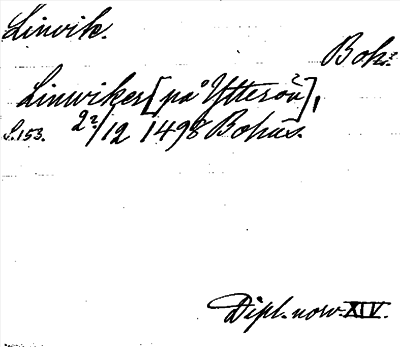 Linvik.
Boh.
Linwiker [på Ytterön],
S. 153. 22/12 1498 Bohus.
Dipl. norv. XIV.